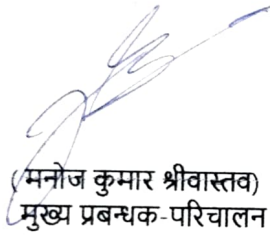 (मनोज कुमार श्रीवास्तव)
मुख्य प्रबन्धक-परिचालन